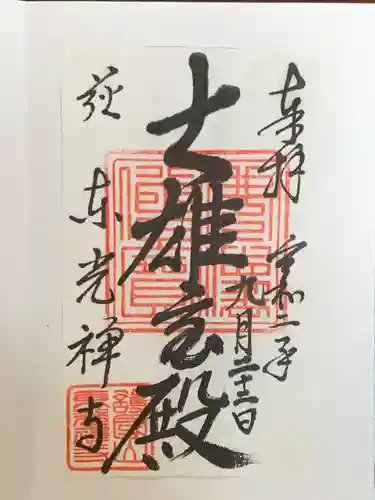 奉拝
令和二年
九月二十二日
大雄宝殿
萩
東光禅寺